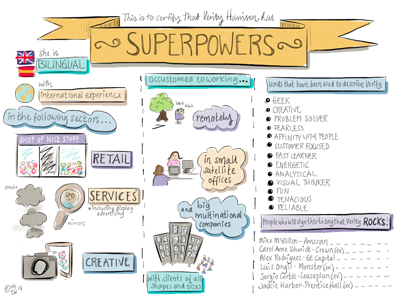 This is to certify that Verity Harrison has
SUPERPOWERS
she is
BILINGUAL
with
international experience
in the following sectors...
SHOP OF NICE STUFF
RETAIL
smoke
mirrors
SERVICES
* including display
advertising
CREATIVE
accustomed to working...
remotely
in small
satellite
offices
and big
multinational
companies
with clients of all
shapes and sizes
Words that have been used to describe Verity
GEEK
CREATIVE
PROBLEM SOLVER
FEARLESS
AFFINITY WITH PEOPLE
CUSTOMER FOCUSED
FAST LEARNER
ENERGETIC
ANALYTICAL
VISUAL THINKER
FUN
TENACIOUS
RELIABLE
People who will sign this to say that Verity ROCKS!
Mike McMillon - Amscan
Carol Anne Schmidt - Crown (ex)
Alex Rodriguez - GE Capital
Luis Ongil - Monster (ex)
Sergio Cortes - Leaseplan (ex)
Jackie Harbor - Prentice Hall (ex)